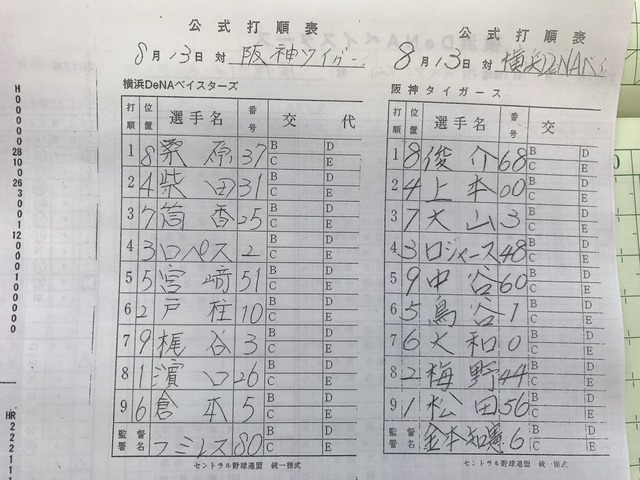 公式打順表
8月13日 対 阪神タイガー
横浜DeNAベイスターズ
打順 位置 選手名 番号 交代
1 8 桑原 37 B D C E
2 4 柴田 31 B D C E
3 7 筒香 25 B D C E
4 3 ロペス 2 B D C E
5 5 宮﨑 51 B D C E
6 2 戸柱 10 B D C E
7 9 梶谷 3 B D C E
8 1 濵口 26 B D C E
9 6 倉本 5 B D C E
監督署名 ラミレス 80 B D C E
セントラル野球連盟 統一様式
公式打順表
8月13日 対 横浜DNAベ
阪神タイガース
打順 位置 選手名 番号 交
1 8 俊介 68 B D C E
2 4 上本 00 B D C E
3 7 大山 3 B D C E
4 3 ロジャース 48 B D C E
5 9 中谷 60 B D C E
6 5 鳥谷 1 B D C E
7 6 大和 0 B D C E
8 2 梅野 44 B D C E
9 1 松田 56 B D C E
監督署名 金本知憲 6 B D C E
セントラル野球連盟 統一様式